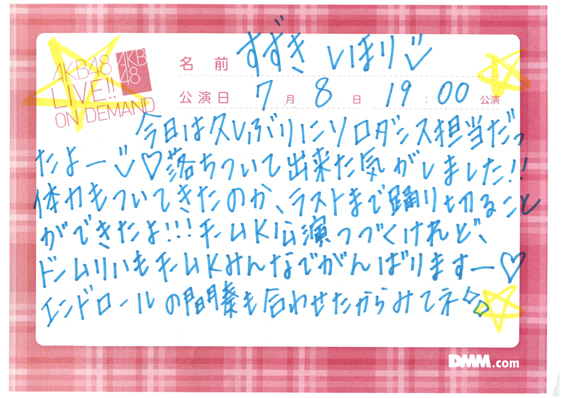 AKB48
LIVE!!
ON DEMAND
AKB
48
名前 すずき しほり
公演日 7月8日 19:00 公演
今日は久しぶりにソロダンス担当だっ
たよー♡落ちついて出来た気がしました!!
体力もついてきたのか、ラストまで踊り切ること
ができたよ!!! チムK公演つづくけれど、
チムKみんなでがんばりますー♡
エンドロールの間奏も合わせたからみてネ
DMM.com